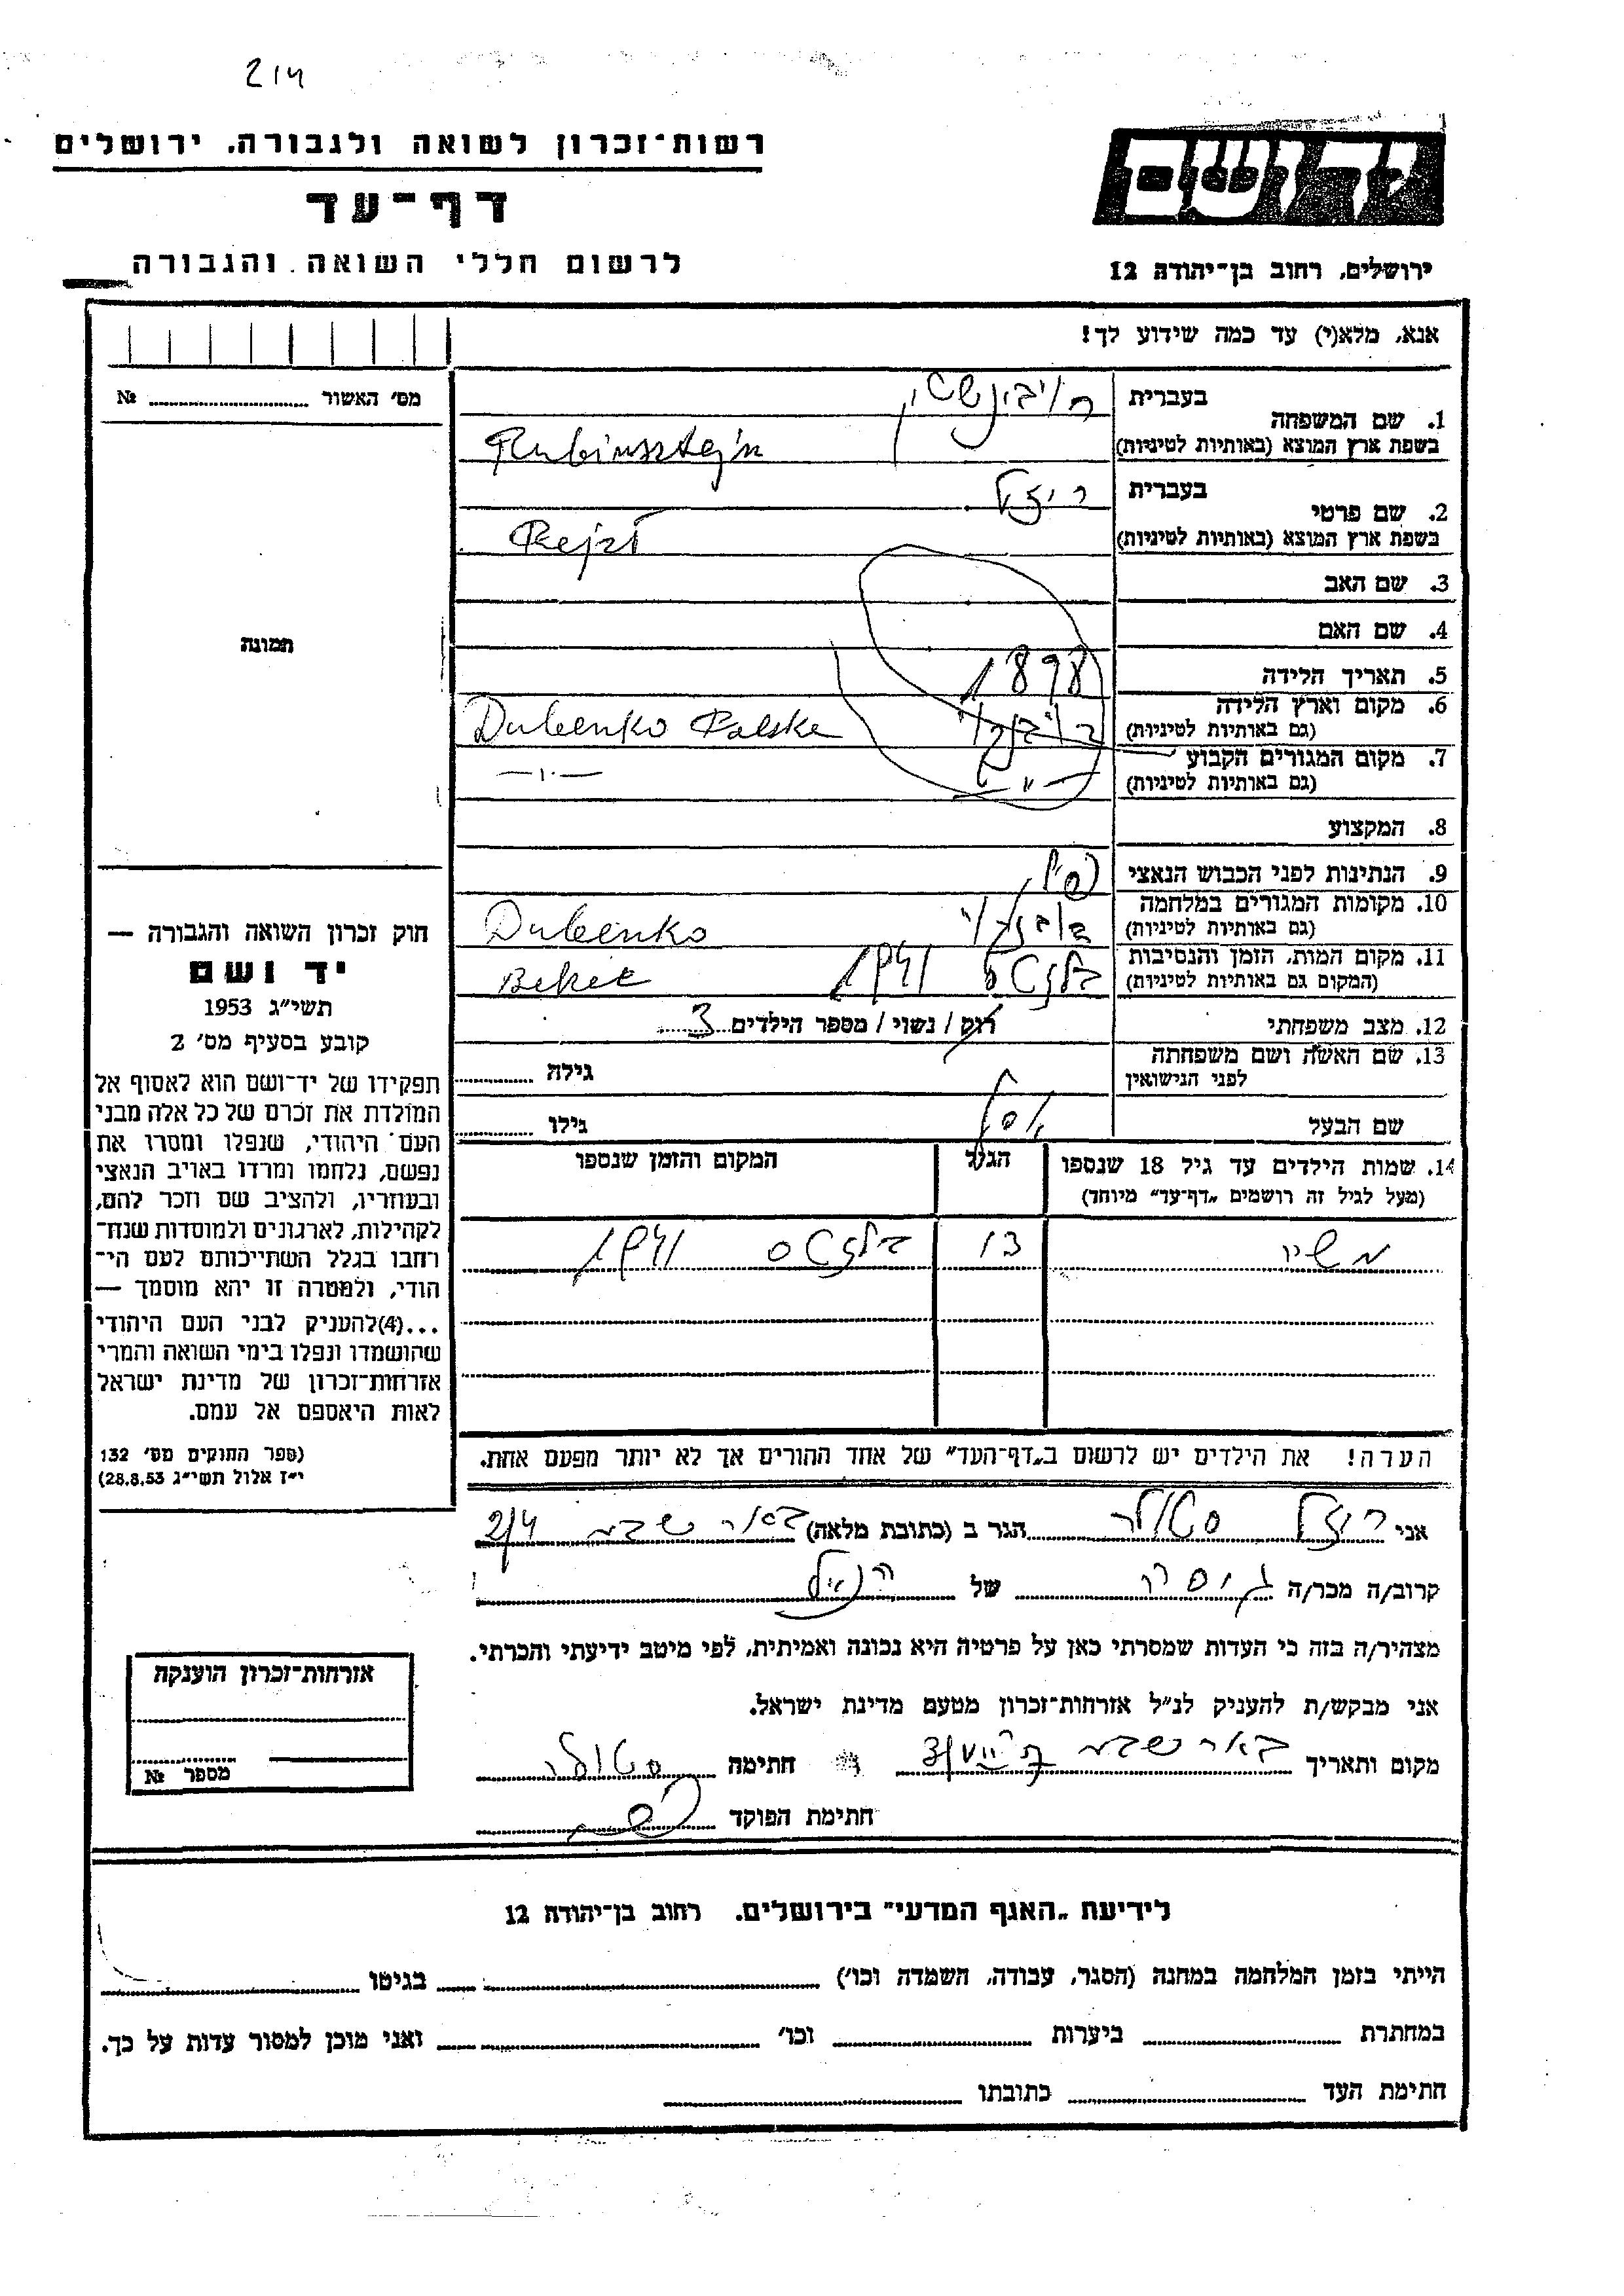 214
רשות־זכרון לשואה ולגבורה. ירושלים
דף־עד
לרשום חללי השואה והגבורה
יד ושם
ירושלים, רחוב בן־יהודה 12
אנא, מלא(י) עד כמה שידוע לך!
מס׳ האשור № ..........
תמונה
1. שם המשפחה
בעברית רובינשטיין
בשפת ארץ המוצא (באותיות לטיניות) Rubinsztejn
2. שם פרטי
בעברית ריזל
בשפת ארץ המוצא (באותיות לטיניות) Rejzl
3. שם האב
4. שם האם
5. תאריך הלידה 1898
6. מקום וארץ הלידה
(גם באותיות לטיניות) Dubenko Polske
7. מקום המגורים הקבוע
(גם באותיות לטיניות) —״—
8. המקצוע
9. הנתינות לפני הכבוש הנאצי
10. מקומות המגורים במלחמה
(גם באותיות לטיניות) Dubenko
11. מקום המות, הזמן והנסיבות
(המקום גם באותיות לטיניות) 1941
12. מצב משפחתי רוק / נשוי / מספר הילדים 3
13. שם האשה ושם משפחתה
לפני הנישואין
גילה ..........
שם הבעל יוסל
גילו ..........
14. שמות הילדים עד גיל 18 שנספו
(מעל לגיל זה רושמים „דף־עד״ מיוחד)
הגיל
המקום והזמן שנספו
13 1941
הערה! את הילדים יש לרשום ב„דף־העד״ של אחד ההורים אך לא יותר מפעם אחת.
חוק זכרון השואה והגבורה —
יד ושם
תשי״ג 1953
קובע בסעיף מס׳ 2
תפקידו של יד־ושם הוא לאסוף אל
המולדת את זכרם של כל אלה מבני
העם היהודי, שנפלו ומסרו את
נפשם, נלחמו ומרדו באויב הנאצי
ובעוזריו, ולהציב שם וזכר להם,
לקהילות, לארגונים ולמוסדות שנח־
רבו בגלל השתייכותם לעם הי־
הודי, ולמטרה זו יהא מוסמך —
...(4)להעניק לבני העם היהודי
שהושמדו ונפלו בימי השואה והמרי
אזרחות־זכרון של מדינת ישראל
לאות היאספם אל עמם.
(ספר החוקים מס׳ 132
י״ז אלול תשי״ג 28.8.53)
אני ריזל סטולר הגר ב (כתובת מלאה) באר שבע 2/4
קרוב/ה מכר/ה גיסה של הנ״ל
מצהיר/ה בזה כי העדות שמסרתי כאן על פרטיה היא נכונה ואמיתית, לפי מיטב ידיעתי והכרתי.
אני מבקש/ת להעניק לנ״ל אזרחות־זכרון מטעם מדינת ישראל.
מקום ותאריך באר שבע חתימה סטולר
חתימת הפוקד
אזרחות־זכרון הוענקה
מספר №
לידיעת „האגף המדעי״ בירושלים. רחוב בן־יהודה 12
הייתי בזמן המלחמה במחנה (הסגר, עבודה, השמדה וכו׳) .......... בגיטו ..........
במחתרת .......... ביערות .......... וכו׳ .......... ואני מוכן למסור עדות על כך.
חתימת העד .......... כתובתו ..........